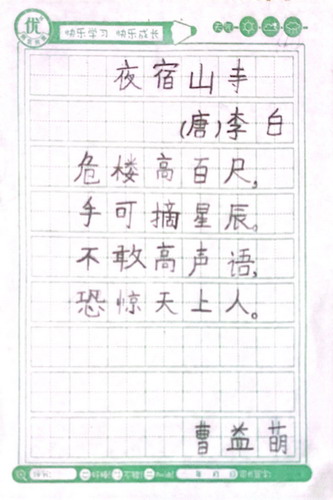 优
快乐学习 快乐成长
夜宿山寺
(唐)李白
危楼高百尺,
手可摘星辰。
不敢高声语,
恐惊天上人。
曹益萌